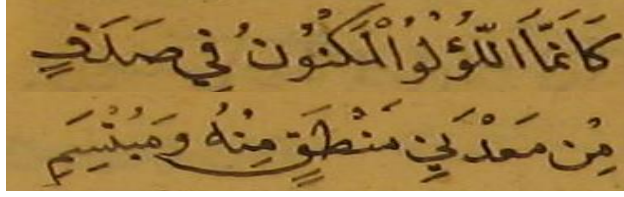 كَاَنَّمَا اللُّؤْلُؤُ الْمَكْنُونُ فِي صَدَفٍ
مِنْ مَعْدَنَيْ مَنْطِقٍ مِنْهُ وَمُبْتَسِمِ